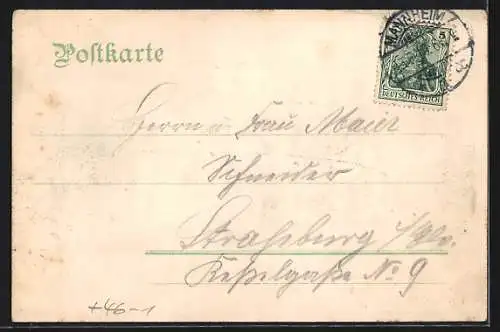 Postkarte
MANNHEIM
5
DEUTSCHES REICH
Herrn u Frau Maier
Schneider
Straßburg i/Els.
Keßelgaße No 9
+46-1